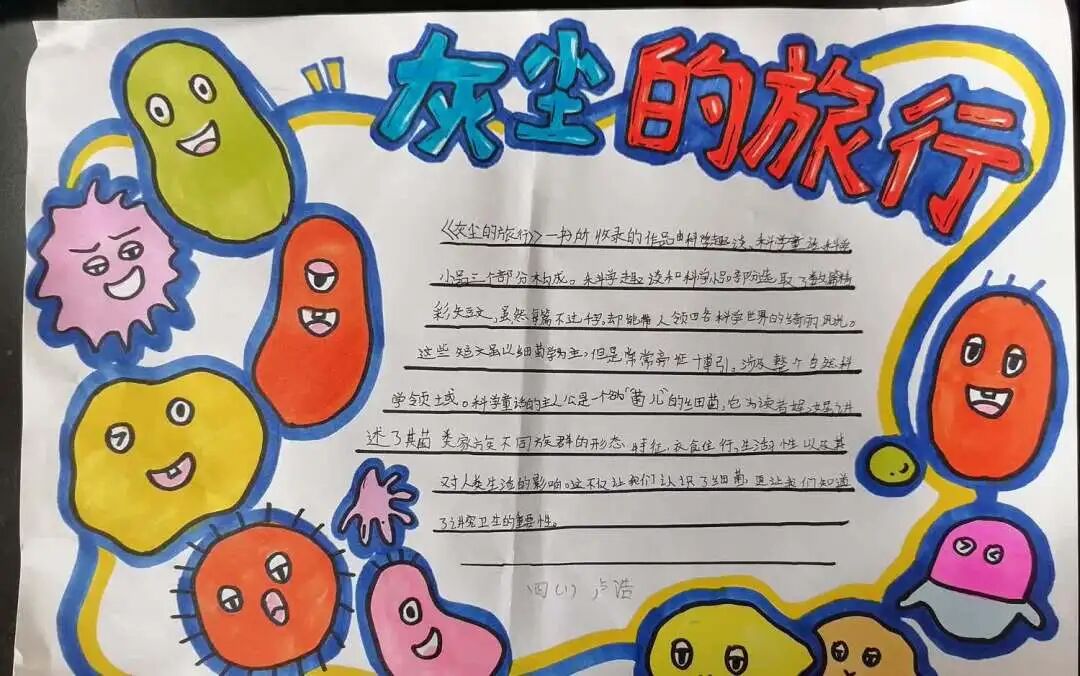 灰尘的旅行
《灰尘的旅行》一书所收录的作品由科学趣谈、科学童话、科学
小品三个部分构成。科学趣谈和科学小品部分选取了数篇精
彩短文,虽然每篇不过千字,却能带人领四各科学世界的奇风光。
这些短文虽以细菌学为主,但是常常旁征博引。涉及整个自然科
学领域。科学童话的主人公是一个叫"菌儿"的细菌,它为读者娓娓
述了其菌类家族不同族群的形态特征,衣食住行,生活习性以及其
对人类生活的影响。这不仅让我们认识了细菌,更让我们知道
了讲究卫生的重要性。
四(1)卢浩